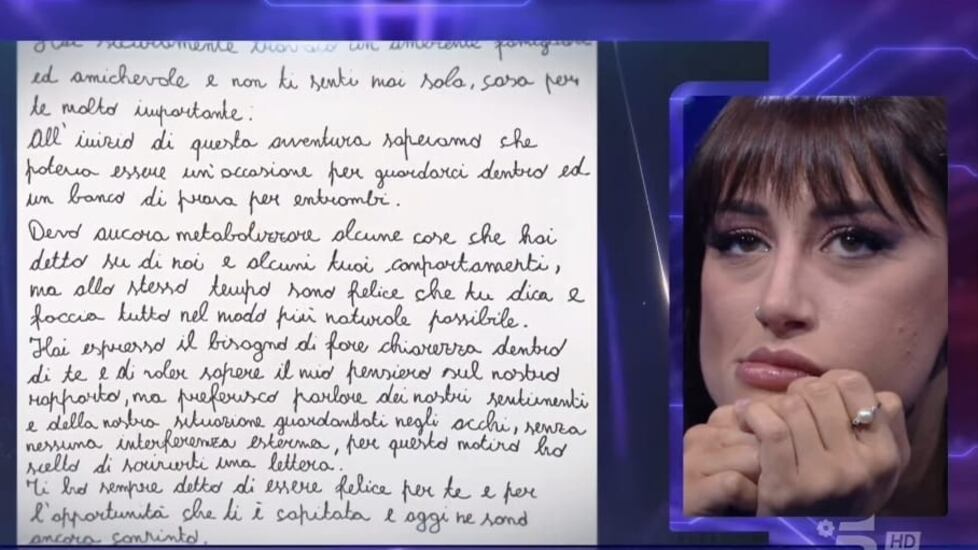 Hai sicuramente trovato un ambiente famigliare
ed amichevole e non ti senti mai sola, cosa per
te molto importante.
All'inizio di questa avventura sapevamo che
poteva essere un'occasione per guardarci dentro ed
un banco di prova per entrambi.
Devo ancora metabolizzare alcune cose che hai
detto su di noi e alcuni tuoi comportamenti,
ma allo stesso tempo sono felice che tu dica e
faccia tutto nel modo più naturale possibile.
Hai espresso il bisogno di fare chiarezza dentro
di te e di voler sapere il mio pensiero sul nostro
rapporto, ma preferisco parlare dei nostri sentimenti
e della nostra situazione guardandoti negli occhi, senza
nessuna interferenza esterna, per questo motivo ho
scelto di scriverti una lettera.
Ti ho sempre detto di essere felice per te e per
l'opportunità che ti è capitata e oggi ne sono
ancora convinto.
5 HD